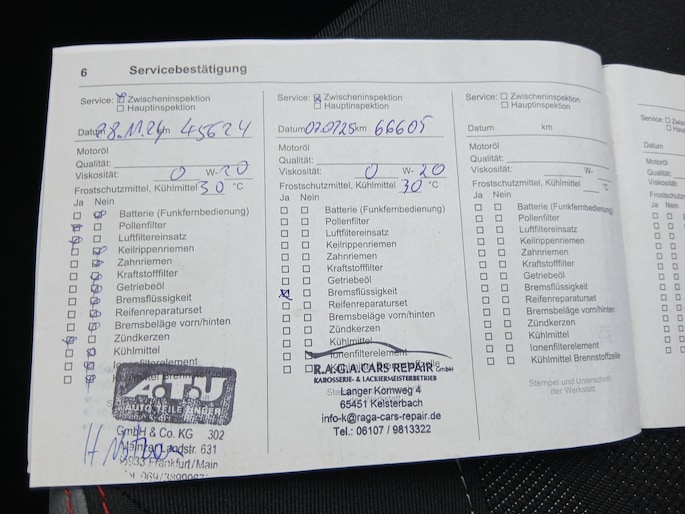 6 Servicebestätigung
Service: Zwischeninspektion
Hauptinspektion
Datum 28.11.24 km 45624
Motoröl
Qualität:
Viskosität: 0 W-20
Frostschutzmittel, Kühlmittel 30 °C
Ja Nein
Batterie (Funkfernbedienung)
Pollenfilter
Luftfiltereinsatz
Keilrippenriemen
Zahnriemen
Kraftstofffilter
Getriebeöl
Bremsflüssigkeit
Reifenreparaturset
Bremsbeläge vorn/hinten
Zündkerzen
Kühlmittel
Ionenfilterelement
A.T.U
AUTO TEILE UNGER
GmbH & Co. KG 302
Mainzer Landstr. 631
Frankfurt/Main
Service: Zwischeninspektion
Hauptinspektion
Datum 07.07.25 km 66605
Motoröl
Qualität:
Viskosität: 0 W-20
Frostschutzmittel, Kühlmittel 30 °C
Ja Nein
Batterie (Funkfernbedienung)
Pollenfilter
Luftfiltereinsatz
Keilrippenriemen
Zahnriemen
Kraftstofffilter
Getriebeöl
Bremsflüssigkeit
Reifenreparaturset
Bremsbeläge vorn/hinten
Zündkerzen
Kühlmittel
Ionenfilterelement
R.A.G.A. CARS REPAIR GmbH
KAROSSERIE- & LACKIERMEISTERBETRIEB
Langer Kornweg 4
65451 Kelsterbach
info-k@raga-cars-repair.de
Tel.: 06107 / 9813322
Service: Zwischeninspektion
Hauptinspektion
Datum km
Motoröl
Qualität:
Viskosität: W-
Frostschutzmittel, Kühlmittel °C
Ja Nein
Batterie (Funkfernbedienung)
Pollenfilter
Luftfiltereinsatz
Keilrippenriemen
Zahnriemen
Kraftstofffilter
Getriebeöl
Bremsflüssigkeit
Reifenreparaturset
Bremsbeläge vorn/hinten
Zündkerzen
Kühlmittel
Ionenfilterelement
Kühlmittel Brennstoffzelle
Stempel und Unterschrift
der Werkstatt
Service:
Datum
Motoröl
Qualität:
Viskosität:
Frostschutzmittel
Ja Nein